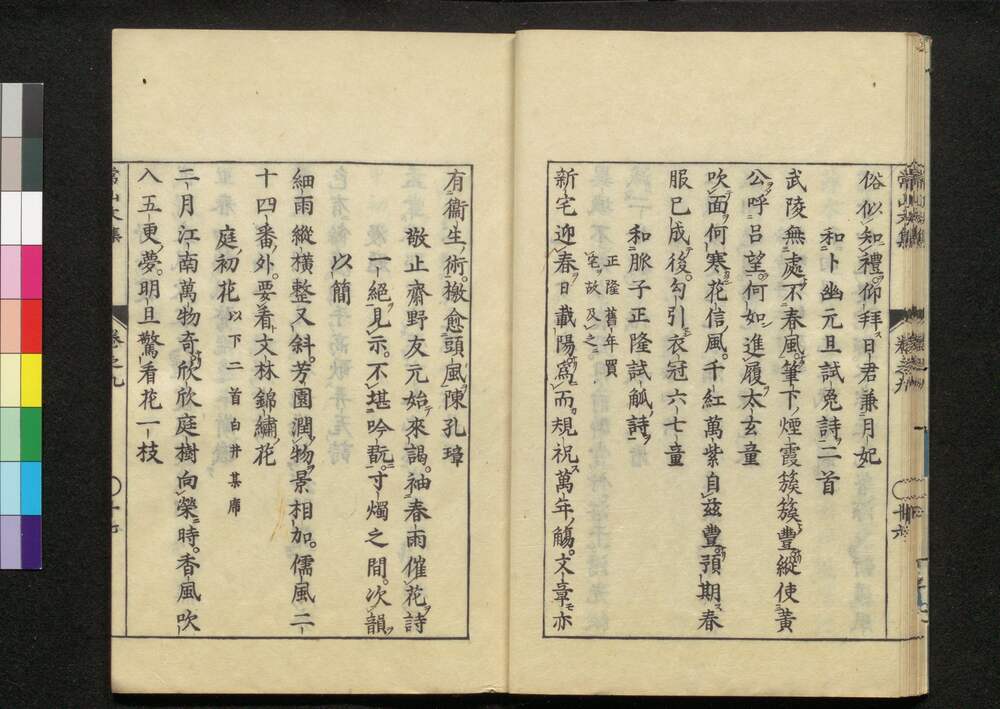 俗似知禮仰拜日君兼月妃
和卜幽元旦試兔詩二首
武陵無處不春風筆下煙霞簇簇豐縱使黃
公呼呂望何如進履太玄童
吹面何寒花信風千紅萬紫自茲豐預期春
服已成後勾引衣冠六七童
和脈子正隆試觚詩
正隆舊年買
宅故及之
新宅迎春日載陽窩而規祝萬年觴文章亦
有衞生術檄愈頭風陳孔璋
敬止齋野友元始來謁袖春雨催花詩
一絕見示不堪吟翫寸燭之間次韻
以簡
細雨縱橫整又斜芳園潤物景相加儒風二
十四番外要看文林錦繡花
庭初花以下二首白井某席
二月江南萬物奇欣欣庭樹向榮時香風吹
入五更夢明旦驚看花一枝
常山文集
卷之九